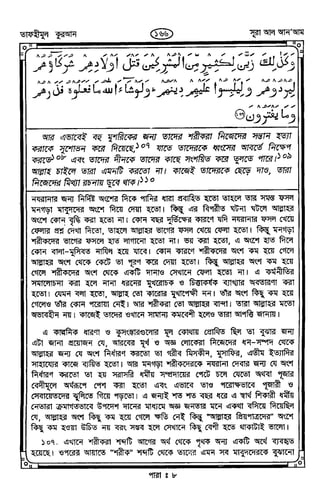 তাফহীমুল কুরআন ১৬৬ সূরা আল আন'আম
وَكَذٰلِكَ زَيَّنَ لِكَثِيْرٍ مِّنَ الْمُشْرِكِيْنَ قَتْلَ اَوْلَادِهِمْ شُرَكَآؤُهُمْ
لِيُرْدُوْهُمْ وَلِيَلْبِسُوْا عَلَيْهِمْ دِيْنَهُمْ ۚ وَلَوْ شَآءَ اللّٰهُ مَا فَعَلُوْهُ فَذَرْهُمْ
وَمَا يَفْتَرُوْنَ
আর এভাবেই বহু মুশরিকের জন্য তাদের শরীকরা নিজেদের সন্তান হত্যা
করাকে সুশোভন করে দিয়েছে,১০৭ যাতে তাদেরকে ধ্বংসের আবর্তে নিক্ষেপ
করতে১০৮ এবং তাদের দীনকে তাদের কাছে সংশয়িত করে তুলতে পারে।১০৯
আল্লাহ চাইলে তারা এমনটি করতো না। কাজেই তাদেরকে ছেড়ে দাও, তারা
নিজেদের মিথ্যা রচনায় ডুবে থাক।১১০
নযরানার জন্য নির্দিষ্ট অংশের দিকে পানির ধারা প্রবাহিত হতো তাহলে তার সমস্ত ফসল
মনগড়া মাবুদদের অংশে দিয়ে দেয়া হতো। কিন্তু এর বিপরীত ঘটনা ঘটলে আল্লাহর
অংশে কোন বৃদ্ধি করা হতো না। কোন বছর দুর্ভিক্ষের কারণে যদি নযরানার ফসল খেয়ে
ফেলার প্রশ্ন দেখা দিতো, তাহলে আল্লাহর ভাগের ফসল খেয়ে ফেলা হতো। কিন্তু মনগড়া
শরীকদের ভাগের ফসলে হাত লাগানো হতো না। ভয় করা হতো, এ অংশে হাত দিলে
কোন বালা-মুসিবত নাযিল হয়ে যাবে। কোন কারণে শরীকদের অংশ কম হয়ে গেলে
আল্লাহর অংশ থেকে কেটে তা পূরণ করে দেয়া হতো। কিন্তু আল্লাহর অংশ কম হয়ে
গেলে শরীকদের অংশ থেকে একটি দানাও সেখানে ফেলা হতো না। এ কর্মনীতির
সমালোচনা করা হলে নানা ধরনের মুখরোচক ও চিত্তাকর্ষক ব্যাখ্যার অবতারণা করা
হতো। যেমন বলা হতো, আল্লাহ তো কারোর মুখাপেক্ষী নন। তাঁর অংশ কিছু কম হয়ে
গেলেও তাঁর কোন পরোয়া নেই। আর শরীকরা তো আল্লাহর বান্দা। তারা আল্লাহর মতো
অভাবহীন নয়। কাজেই তাদের ওখানে সামান্য কমবেশী হলেও তারা আপত্তি জানায়।
এ কাল্পনিক ধারণা ও কুসংস্কারগুলোর মূল কোথায় প্রোথিত ছিল তা বুঝার জন্য
এটা জানা প্রয়োজন যে, আরবের মূর্খ ও অজ্ঞ লোকেরা নিজেদের ধন-সম্পদ থেকে
আল্লাহর জন্য যে অংশ নির্ধারণ করতো তা গরীব মিসকীন, মুসাফির, এতীম ইত্যাদির
সাহায্যের কাজে ব্যয়িত হতো। আর মনগড়া শরীকদেরকে নযরানা দেবার জন্য যে অংশ
নির্ধারণ করতো তা হয় সরাসরি ধর্মীয় সম্প্রদায়ের পেটে চলে যেতো অথবা পূজার
বেদীমূলে অর্ঘরূপে পেশ করা হতো এবং এভাবে তাও পরোক্ষভাবে পূজারী ও
সেবায়েতদের ঝুলিতে গিয়ে পড়তো। এ জন্যই শত শত বছর ধরে এ স্বার্থ শিকারী ধর্মীয়
নেতারা ক্রমাগতভাবে উপদেশ দানের মাধ্যমে অজ্ঞ জনতার মনে একথা বসিয়ে দিয়েছিল
যে, আল্লাহর অংশ কিছু কম হয়ে গেলে ক্ষতি নেই কিন্তু "আল্লাহর প্রিয়পাত্রদের" অংশে
কিছু কম হওয়া উচিত নয় বরং সম্ভব হলে সেখানে কিছু বেশী হতে থাকাটাই ভালো।
১০৭. এখানে শরীকরা শব্দটি আগের অর্থ থেকে পৃথক অন্য একটি অর্থে ব্যবহৃত
হয়েছে। ওপরের আয়াতে "শরীক" শব্দটি থেকে তাদের এমন সব মাবুদদেরকে বুঝানো
পারা : ৮